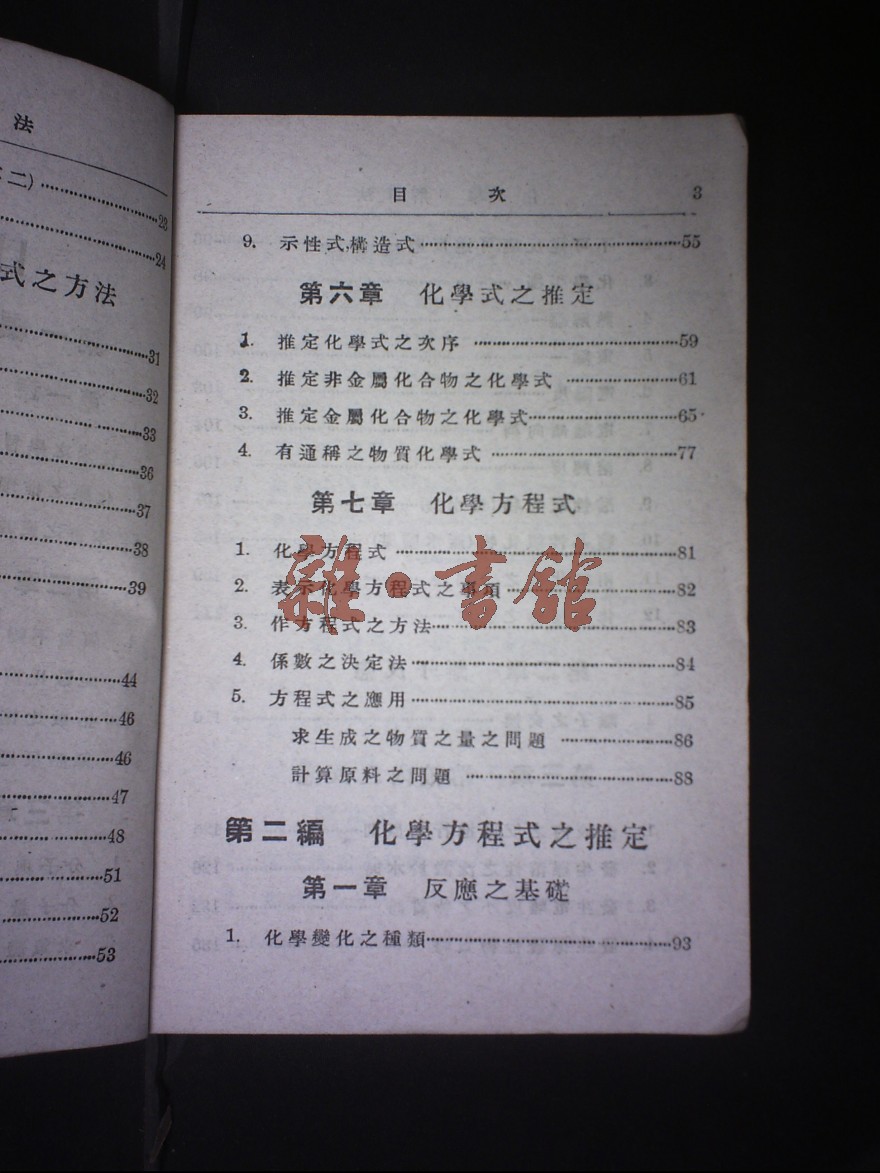 法
二)……23
……24
式之方法
……31
……32
……33
……36
……37
……38
……39
……44
……46
……46
……47
……48
……51
……52
……53
目 次 3
9. 示性式,構造式……55
第六章 化學式之推定
1. 推定化學式之次序……59
2. 推定非金屬化合物之化學式……61
3. 推定金屬化合物之化學式……65
4. 有通稱之物質化學式……77
第七章 化學方程式
1. 化學方程式……81
2. 表示化學方程式之事項……82
3. 作方程式之方法……83
4. 係數之決定法……84
5. 方程式之應用……85
求生成之物質之量之問題……86
計算原料之問題……88
第二編 化學方程式之推定
第一章 反應之基礎
1. 化學變化之種類……93
雜·書館